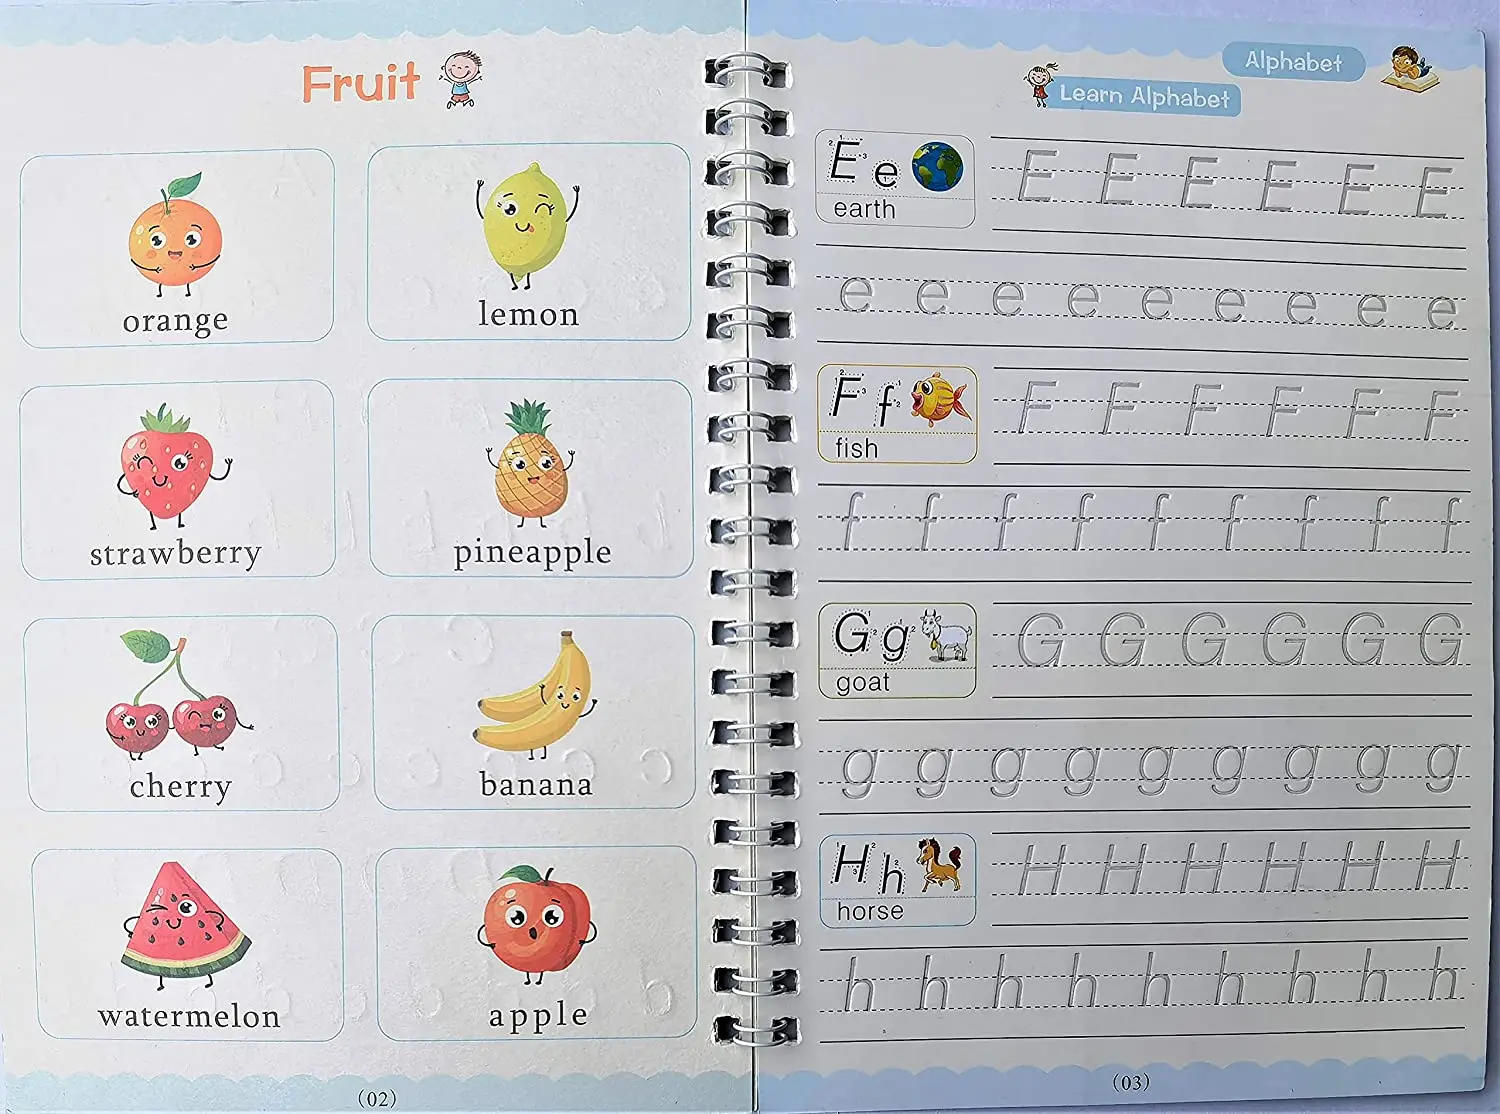 Fruit
orange
lemon
strawberry
pineapple
cherry
banana
watermelon
apple
(02)
Alphabet
Learn Alphabet
E e
earth
E E E E E E
e e e e e e e e e
F f
fish
F F F F F F
f f f f f f f f f
G g
goat
G G G G G G
g g g g g g g g g
H h
horse
H H H H H H
h h h h h h h h h
(03)